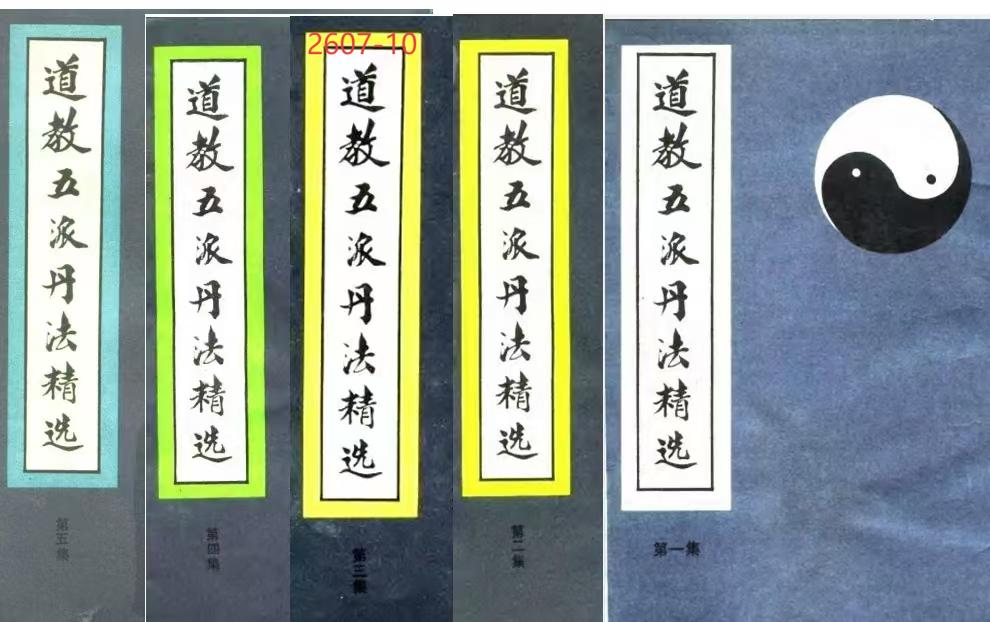 道教五派丹法精选
第五集
道教五派丹法精选
第四集
2607-10
道教五派丹法精选
第三集
道教五派丹法精选
第二集
道教五派丹法精选
第一集